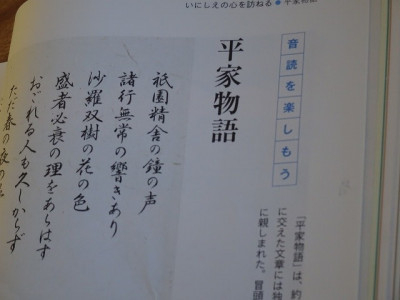 いにしえの心を訪ねる◆平家物語
音読を楽しもう
平家物語
祇園精舎の鐘の声
諸行無常の響きあり
沙羅双樹の花の色
盛者必衰の理をあらはす
おごれる人も久しからず
ただ春の夜の
「平家物語」は、約
に交えた文章には独
に親しまれた。冒頭